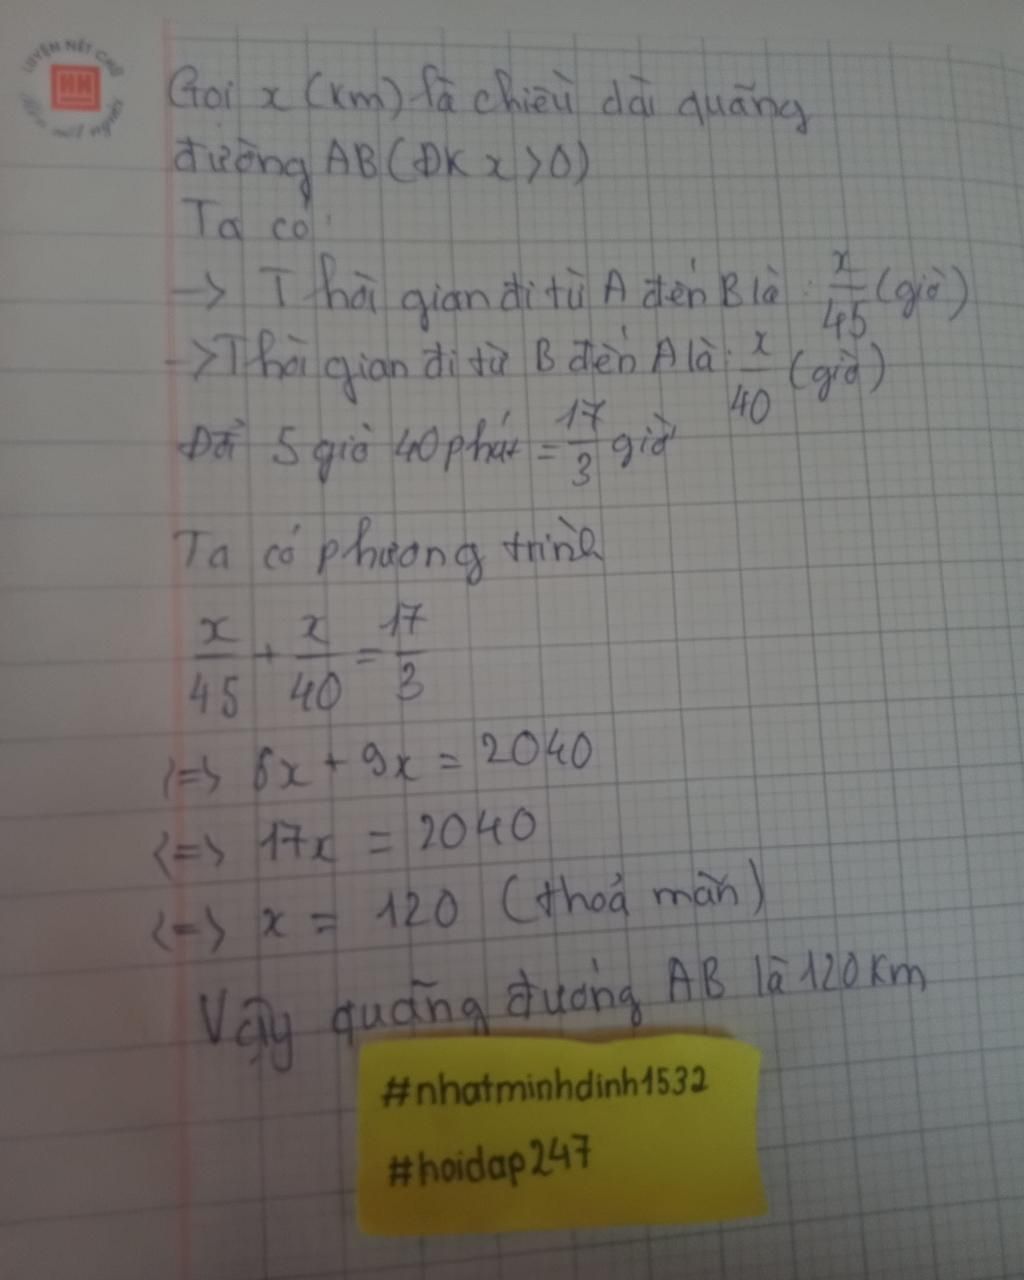 LUYỆN NÉT CHỮ
HH
nết người
Gọi x (km) là chiều dài quãng
đường AB (ĐK x > 0)
Ta có:
-> Thời gian đi từ A đến B là: x/45 (giờ)
-> Thời gian đi từ B đến A là: x/40 (giờ)
Đổi 5 giờ 40 phút = 17/3 giờ
Ta có phương trình
x/45 + x/40 = 17/3
<=> 8x + 9x = 2040
<=> 17x = 2040
<=> x = 120 (thoả mãn)
Vậy quãng đường AB là 120 km
#nhatminhdinh1532
#hoidap247